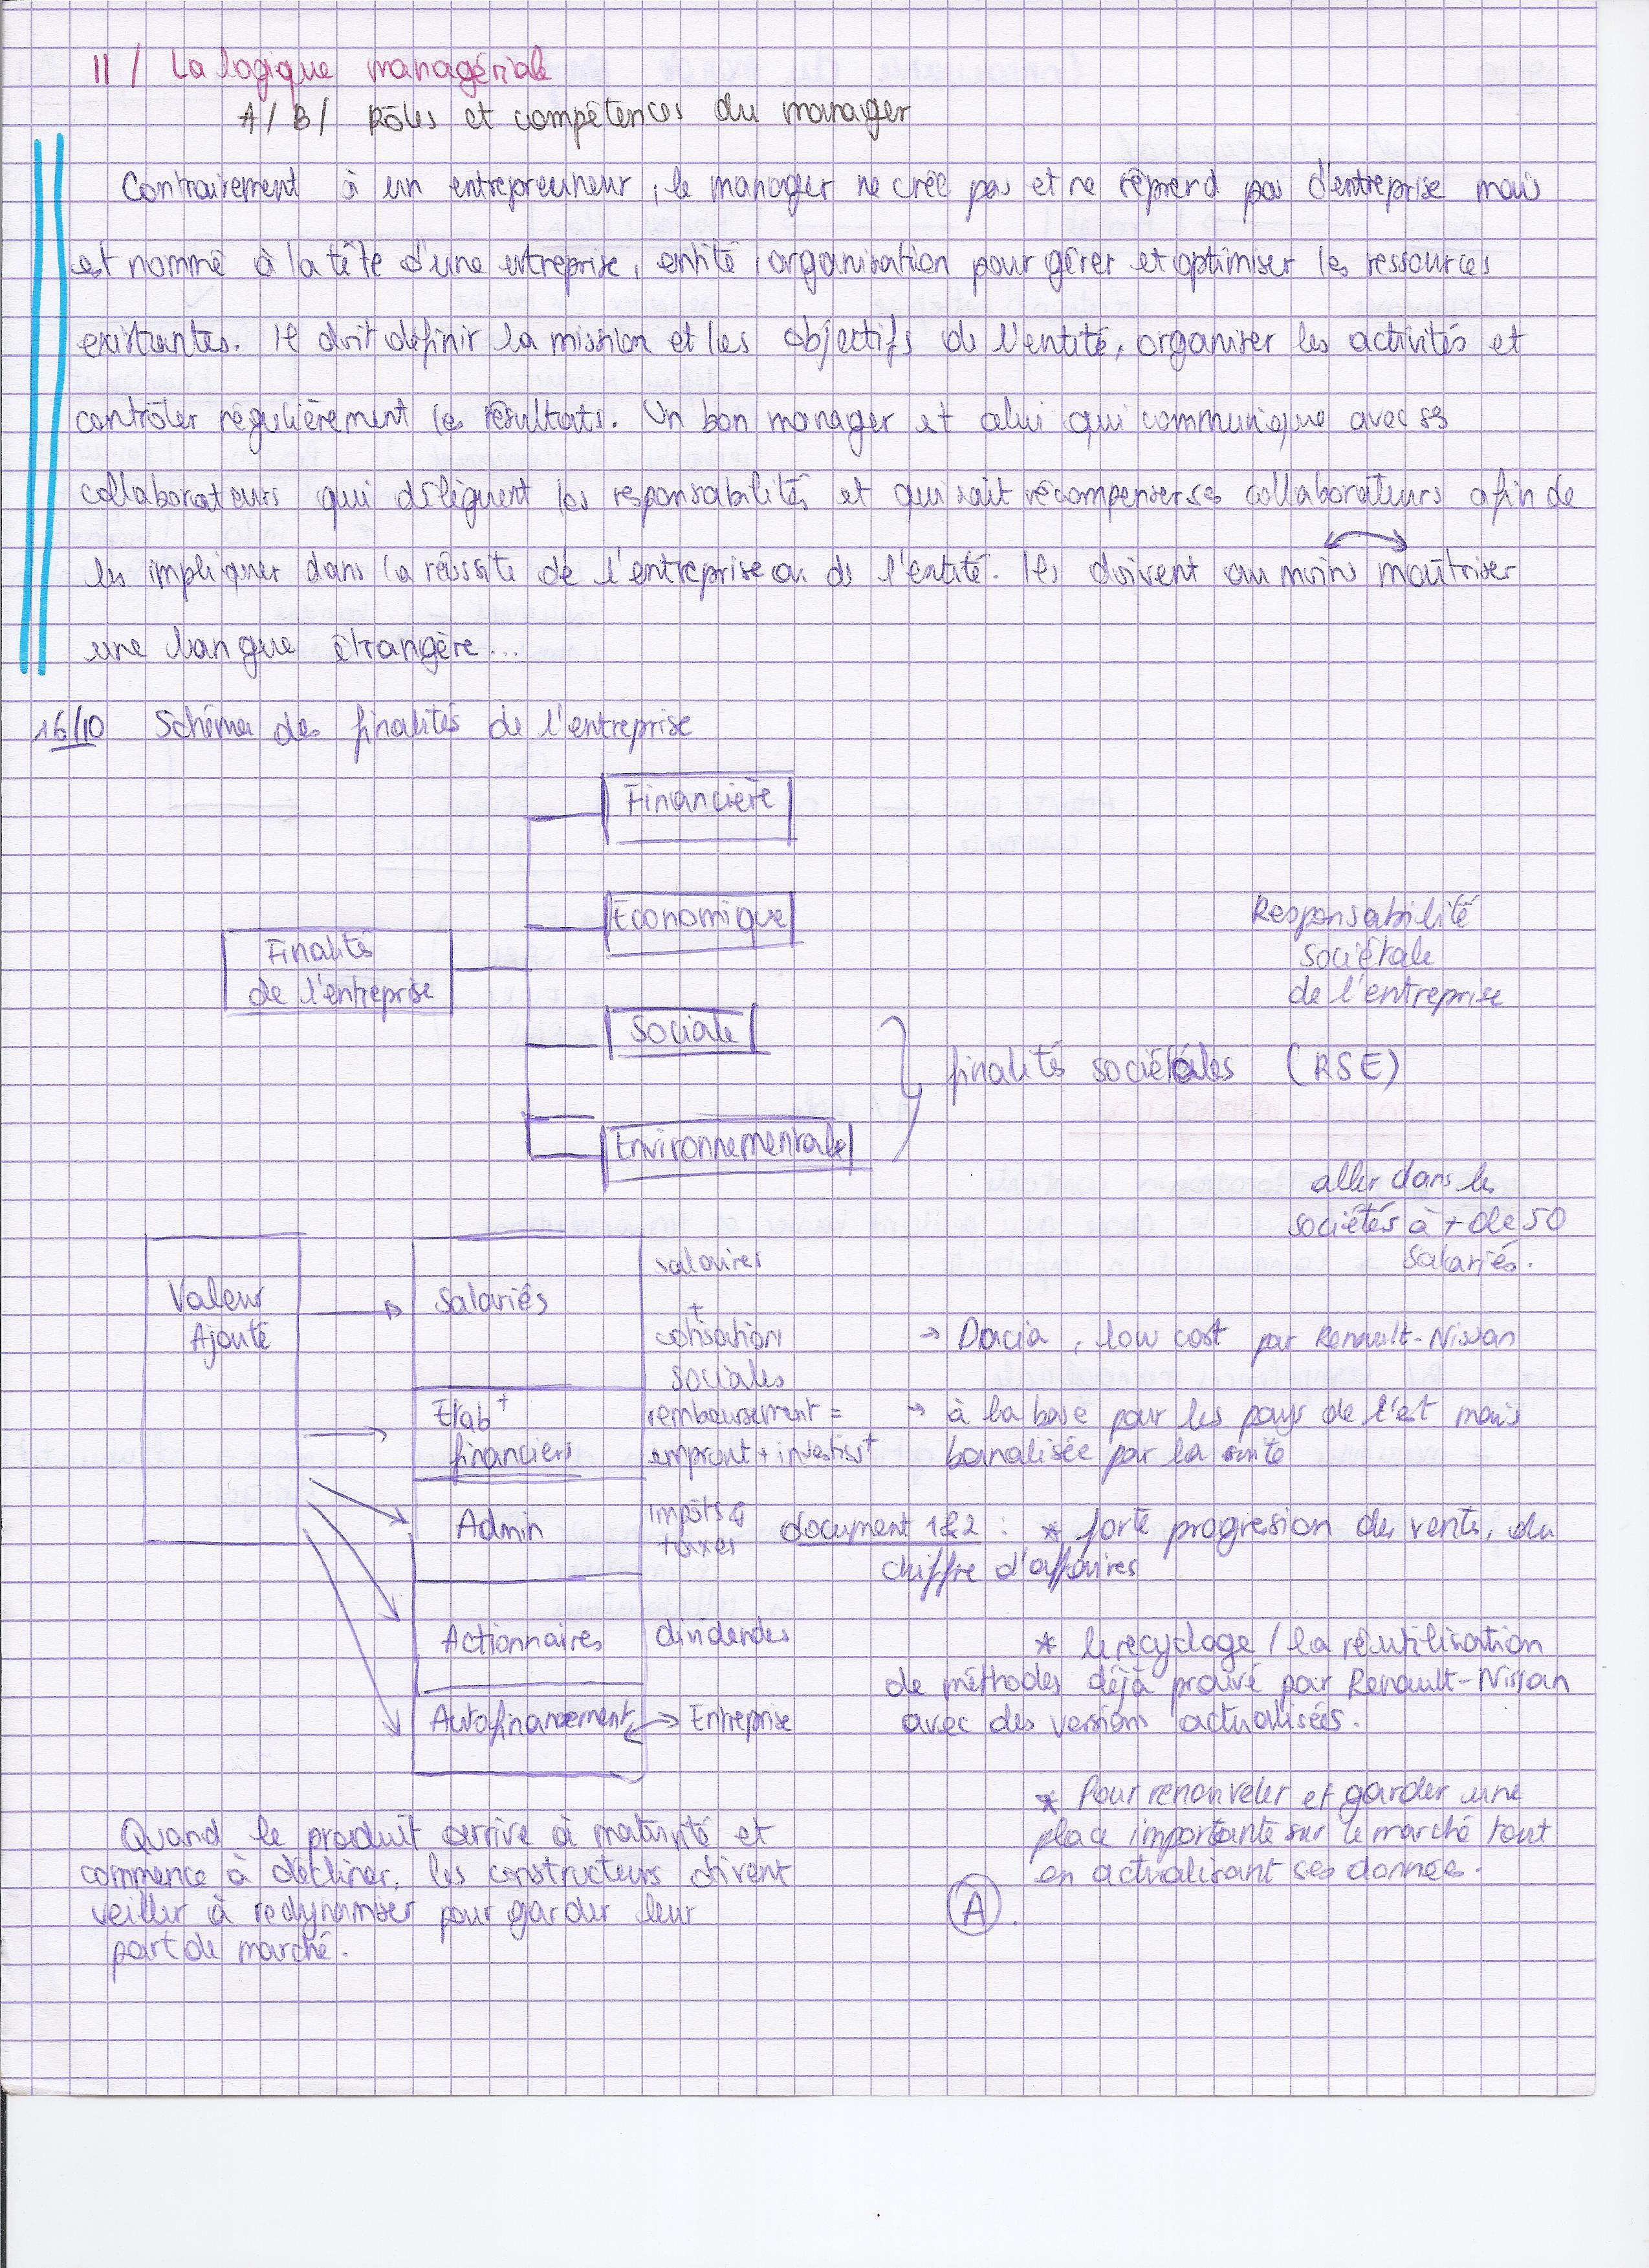 II / La logique managériale
A/ B/ Rôles et compétences du manager
Contrairement à un entrepreuneur, le manager ne crée pas et ne reprend pas d'entreprise mais
est nommé à la tête d'une entreprise, entité, organisation pour gérer et optimiser les ressources
existantes. Il doit définir la mission et les objectifs de l'entité, organiser les activités et
contrôler régulièrement les résultats. Un bon manager et celui qui communique avec ses
collaborateurs qui délèguent les responsabilités et qui sait récompenser ses collaborateurs afin de
les impliquer dans la réussite de l'entreprise ou de l'entité. Ils doivent au moins maîtriser
une langue étrangère...
16/10 Schéma des finalités de l'entreprise
Financière
Economique
Finalités
de l'entreprise
Sociale
Environnementale
Responsabilité
sociétale
de l'entreprise
finalités sociétales (RSE)
aller dans les
sociétés à + de 50
salariés.
Valeur
Ajouté
Salariés
salaires
+
cotisation
sociales
Etab+
financiers
remboursement =
emprunt + investisst
Admin
impôts &
taxes
Actionnaires
dividendes
Autofinancement
Entreprise
→ Dacia, low cost par Renault-Nissan
→ à la base pour les pays de l'est mais
banalisée par la suite
document 1&2 : * forte progression des vente, du
chiffre d'affaires
* le recyclage / la réutilisation
de méthodes déjà prouvé par Renault-Nissan
avec des versions actualisées.
* Pour renouveler et garder une
place importante sur le marché tout
en actualisant ses données.
A.
Quand le produit arrive à maturité et
commence à décliner, les constructeurs doivent
veiller à redynamiser pour garder leur
part de marché.